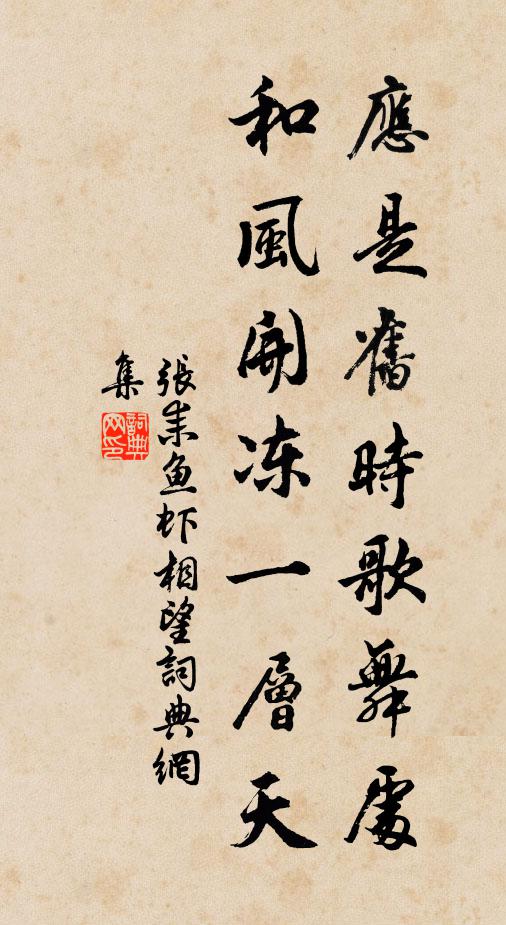 應是舊時歌舞處
和風開凍一層天
張耒鱼虾相望詞典網
集
詞典
网印